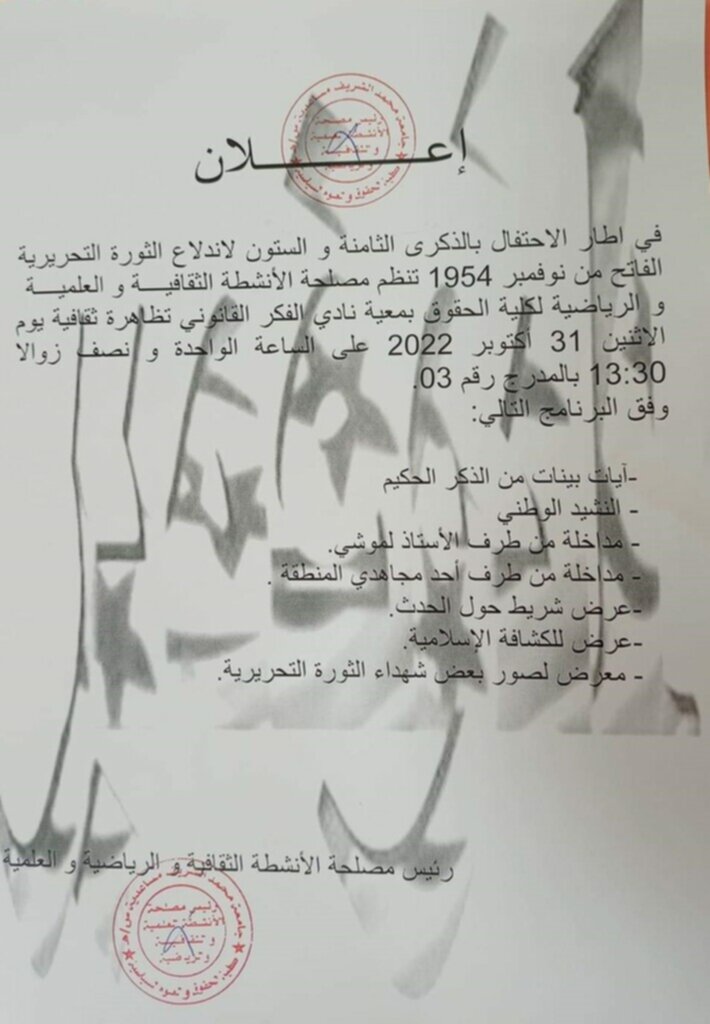 إعـــــــلان
في اطار الاحتفال بالذكرى الثامنة و الستون لاندلاع الثورة التحريرية
الفاتح من نوفمبر 1954 تنظم مصلحة الأنشطة الثقافيـــة و العلميـــة
و الرياضية لكلية الحقوق بمعية نادي الفكر القانوني تظاهرة ثقافية يوم
الاثنين 31 أكتوبر 2022 على الساعة الواحدة و نصف زوالا
13:30 بالمدرج رقم 03.
وفق البرنامج التالي:
-آيات بينات من الذكر الحكيم
- النشيد الوطني
- مداخلة من طرف الأستاذ لموشي.
- مداخلة من طرف أحد مجاهدي المنطقة .
-عرض شريط حول الحدث.
-عرض للكشافة الإسلامية.
- معرض لصور بعض شهداء الثورة التحريرية.
رئيس مصلحة الأنشطة الثقافية و الرياضية و العلمية
جامعة محمد الشريف مساعدية
رئيس مصلحة